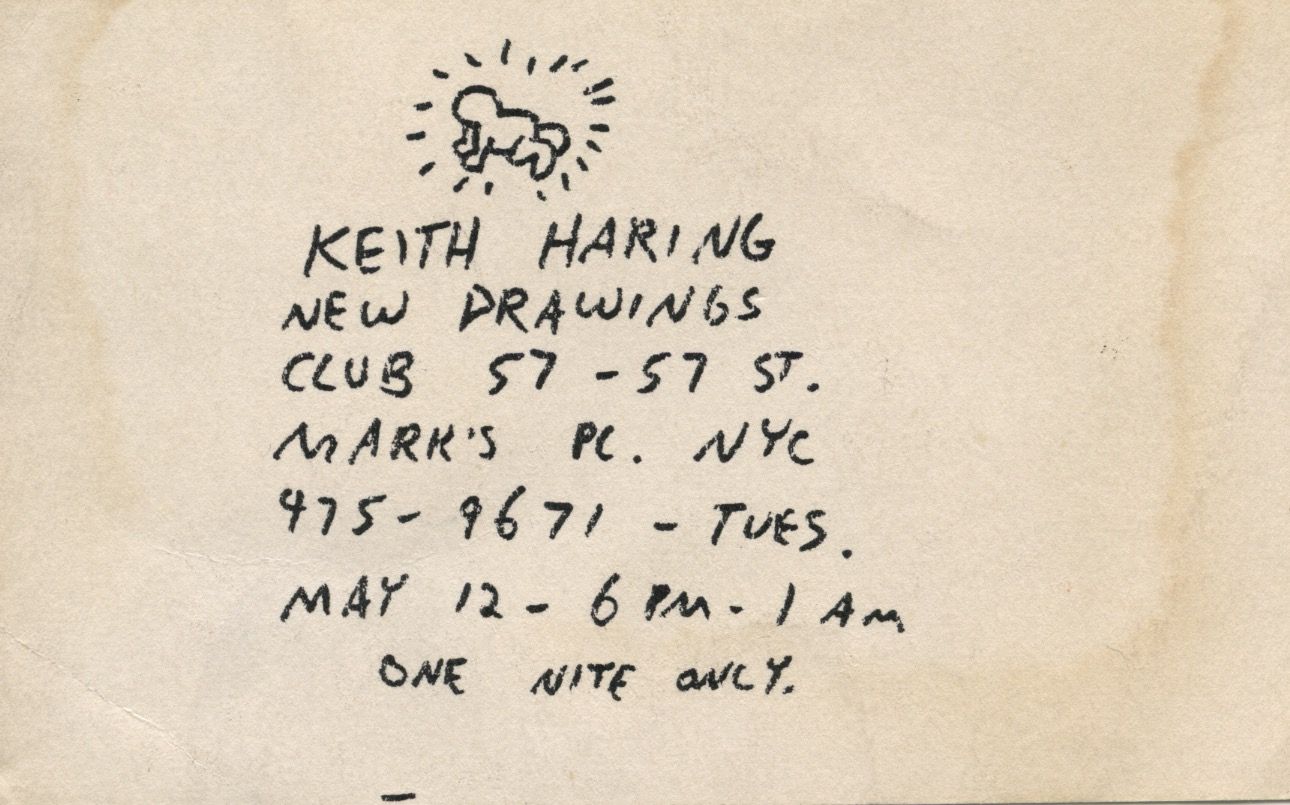 KEITH HARING
NEW DRAWINGS
CLUB 57 - 57 ST.
MARK'S PL. NYC
475- 9671 - TUES.
MAY 12 - 6 PM - 1 AM
ONE NITE ONLY.